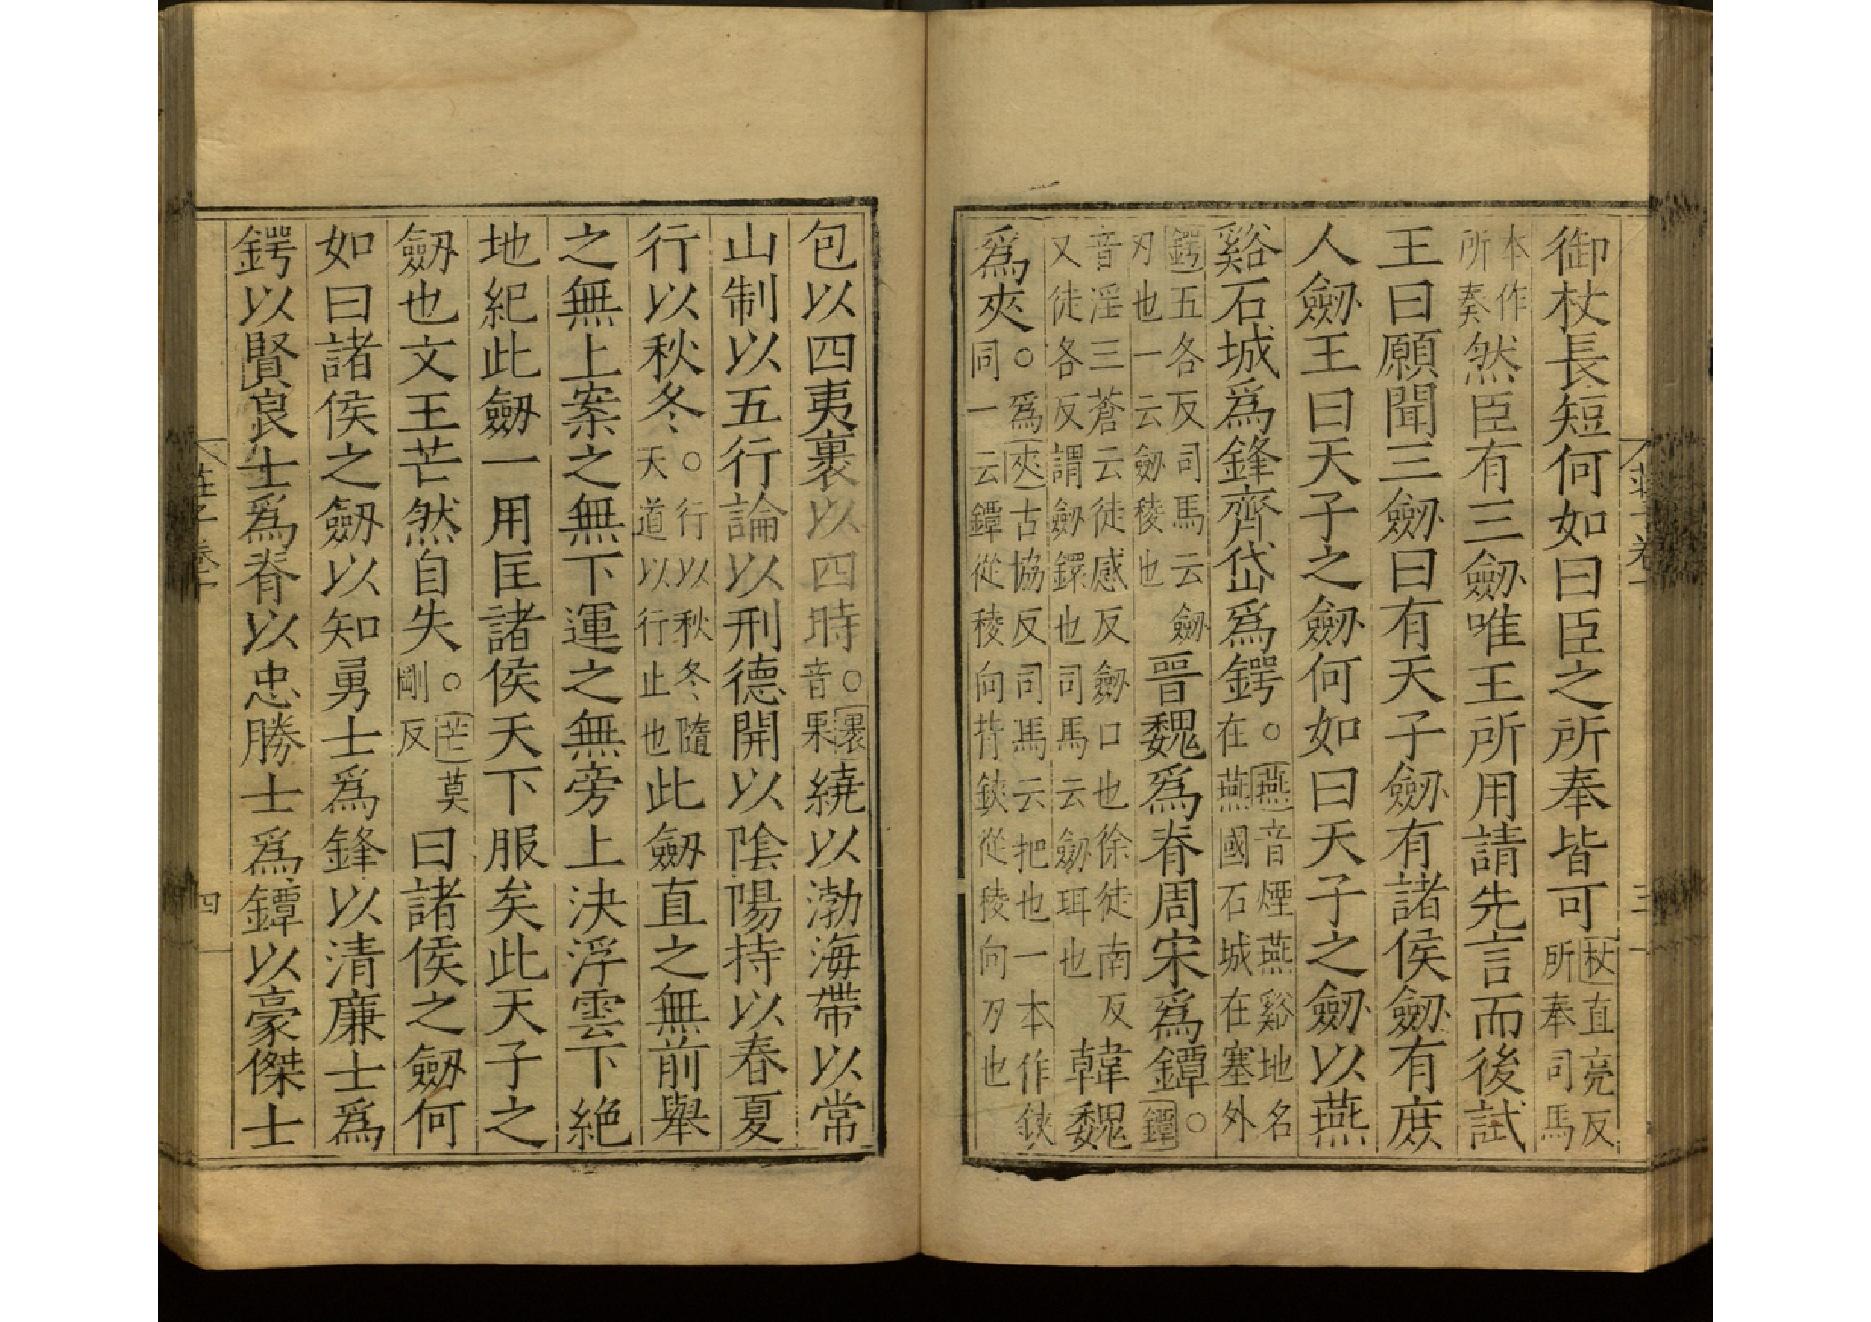 御杖長短何如曰臣之所奉皆可杖直亮反所奉司馬
本作所奏然臣有三劒唯王所用請先言而後試
王曰願聞三劒曰有天子劒有諸侯劒有庶
人劒王曰天子之劒何如曰天子之劒以燕
谿石城爲鋒齊岱爲鍔○燕音煙燕谿地名在燕國石城在塞外
鍔五各反司馬云劒刃也一云劒稜也晉魏爲脊周宋爲鐔○鐔
音淫三蒼云徒感反劒口也徐徒南反又徒各反謂劒鐶也司馬云劒珥也韓魏
爲夾○爲夾古協反司馬云把也一本作鋏同一云鐔從稜向背鋏從稜向刃也
包以四夷裹以四時○裹音果繞以渤海帶以常
山制以五行論以刑德開以陰陽持以春夏
行以秋冬○行以秋冬隨天道以行止也此劒直之無前舉
之無上案之無下運之無旁上決浮雲下絕
地紀此劒一用匡諸侯天下服矣此天子之
劒也文王芒然自失○芒莫剛反曰諸侯之劒何
如曰諸侯之劒以知勇士爲鋒以清廉士爲
鍔以賢良士爲脊以忠勝士爲鐔以豪傑士
四